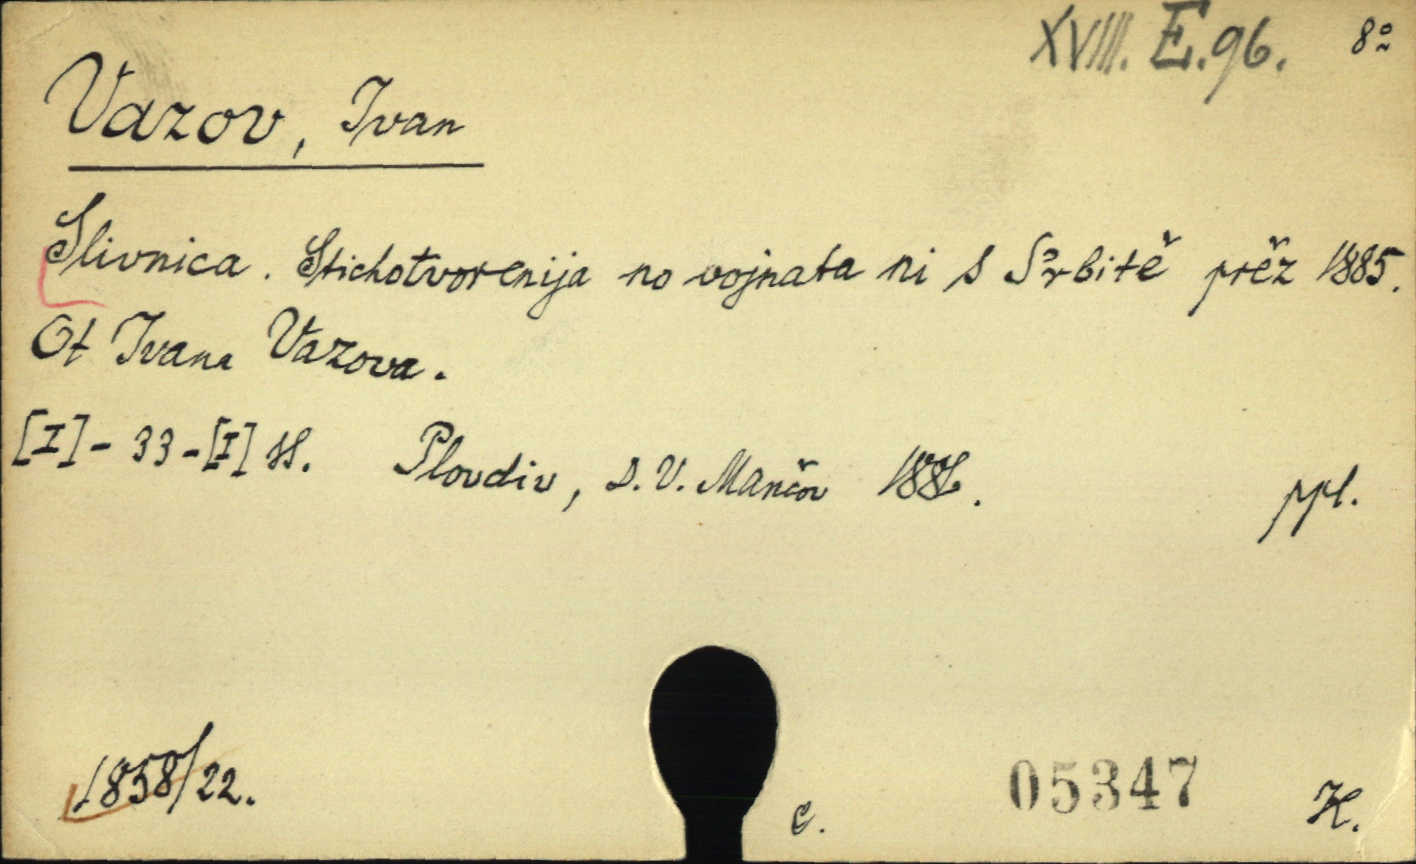 XVIII. E.96. 8°
Vazov, Ivan
Slivnica. Stichotvorenija no vojnata ni s Srbitě prěz 1885.
Ot Ivana Vazova.
[I]-33-[I] Pl. Plovdiv, D.V. Mančov 1886. ppl.
1858/22.
c. 05347 K.